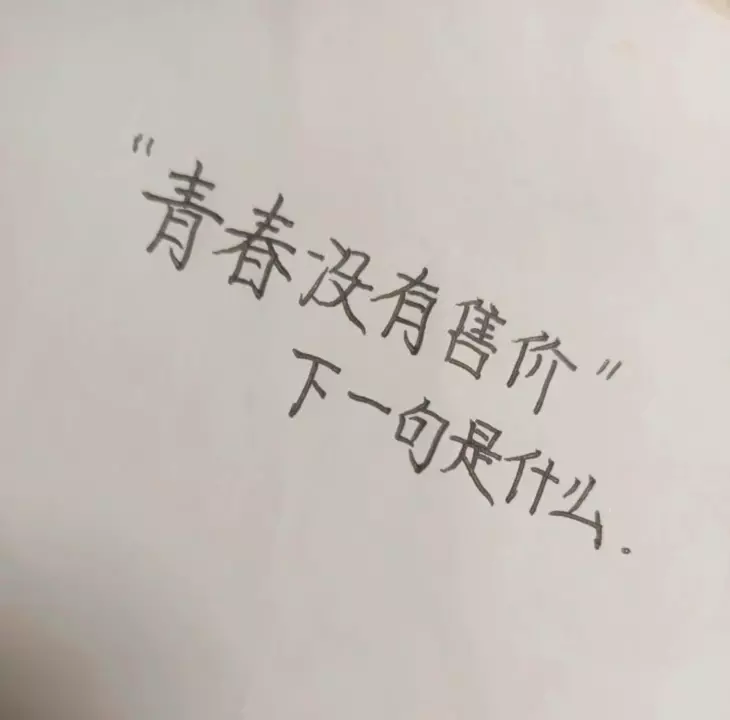 "青春没有售价"
下一句是什么.